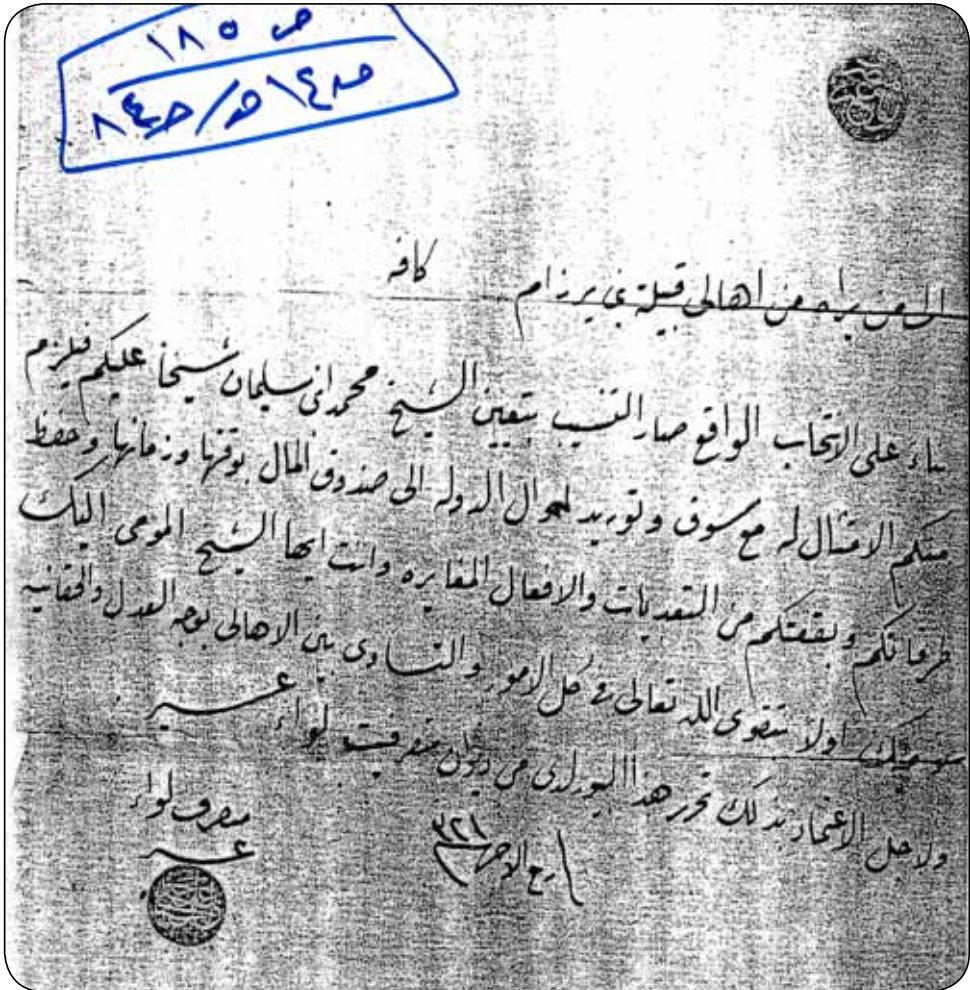 ص ١٨٥
الى من يراه من اهالى قبيلة بنى كافه
بناء على الانتخاب الواقع صار التنسيب بتعيين الشيخ محمد سليمان شيخاً عليكم فيلزم
منكم الامتثال له مع سوق وتوريد اموال الدوله الى صندوق المال بوقتها وزمانها وحفظ
طرقاتكم وبقعتكم من التعديات والافعال المغايره وانت ايها الشيخ المومى اليك
نوصيك اولا بتقوى الله تعالى فى كل الامور والتساوى بين الاهالى بوجه العدل والحقانيه
ولاجل الاعتماد بذلك تحرر هذا البيورلدى من ديوان متصرفيت لواء عسير
ربيع الاخر ٣٢١
متصرف لواء
عسير